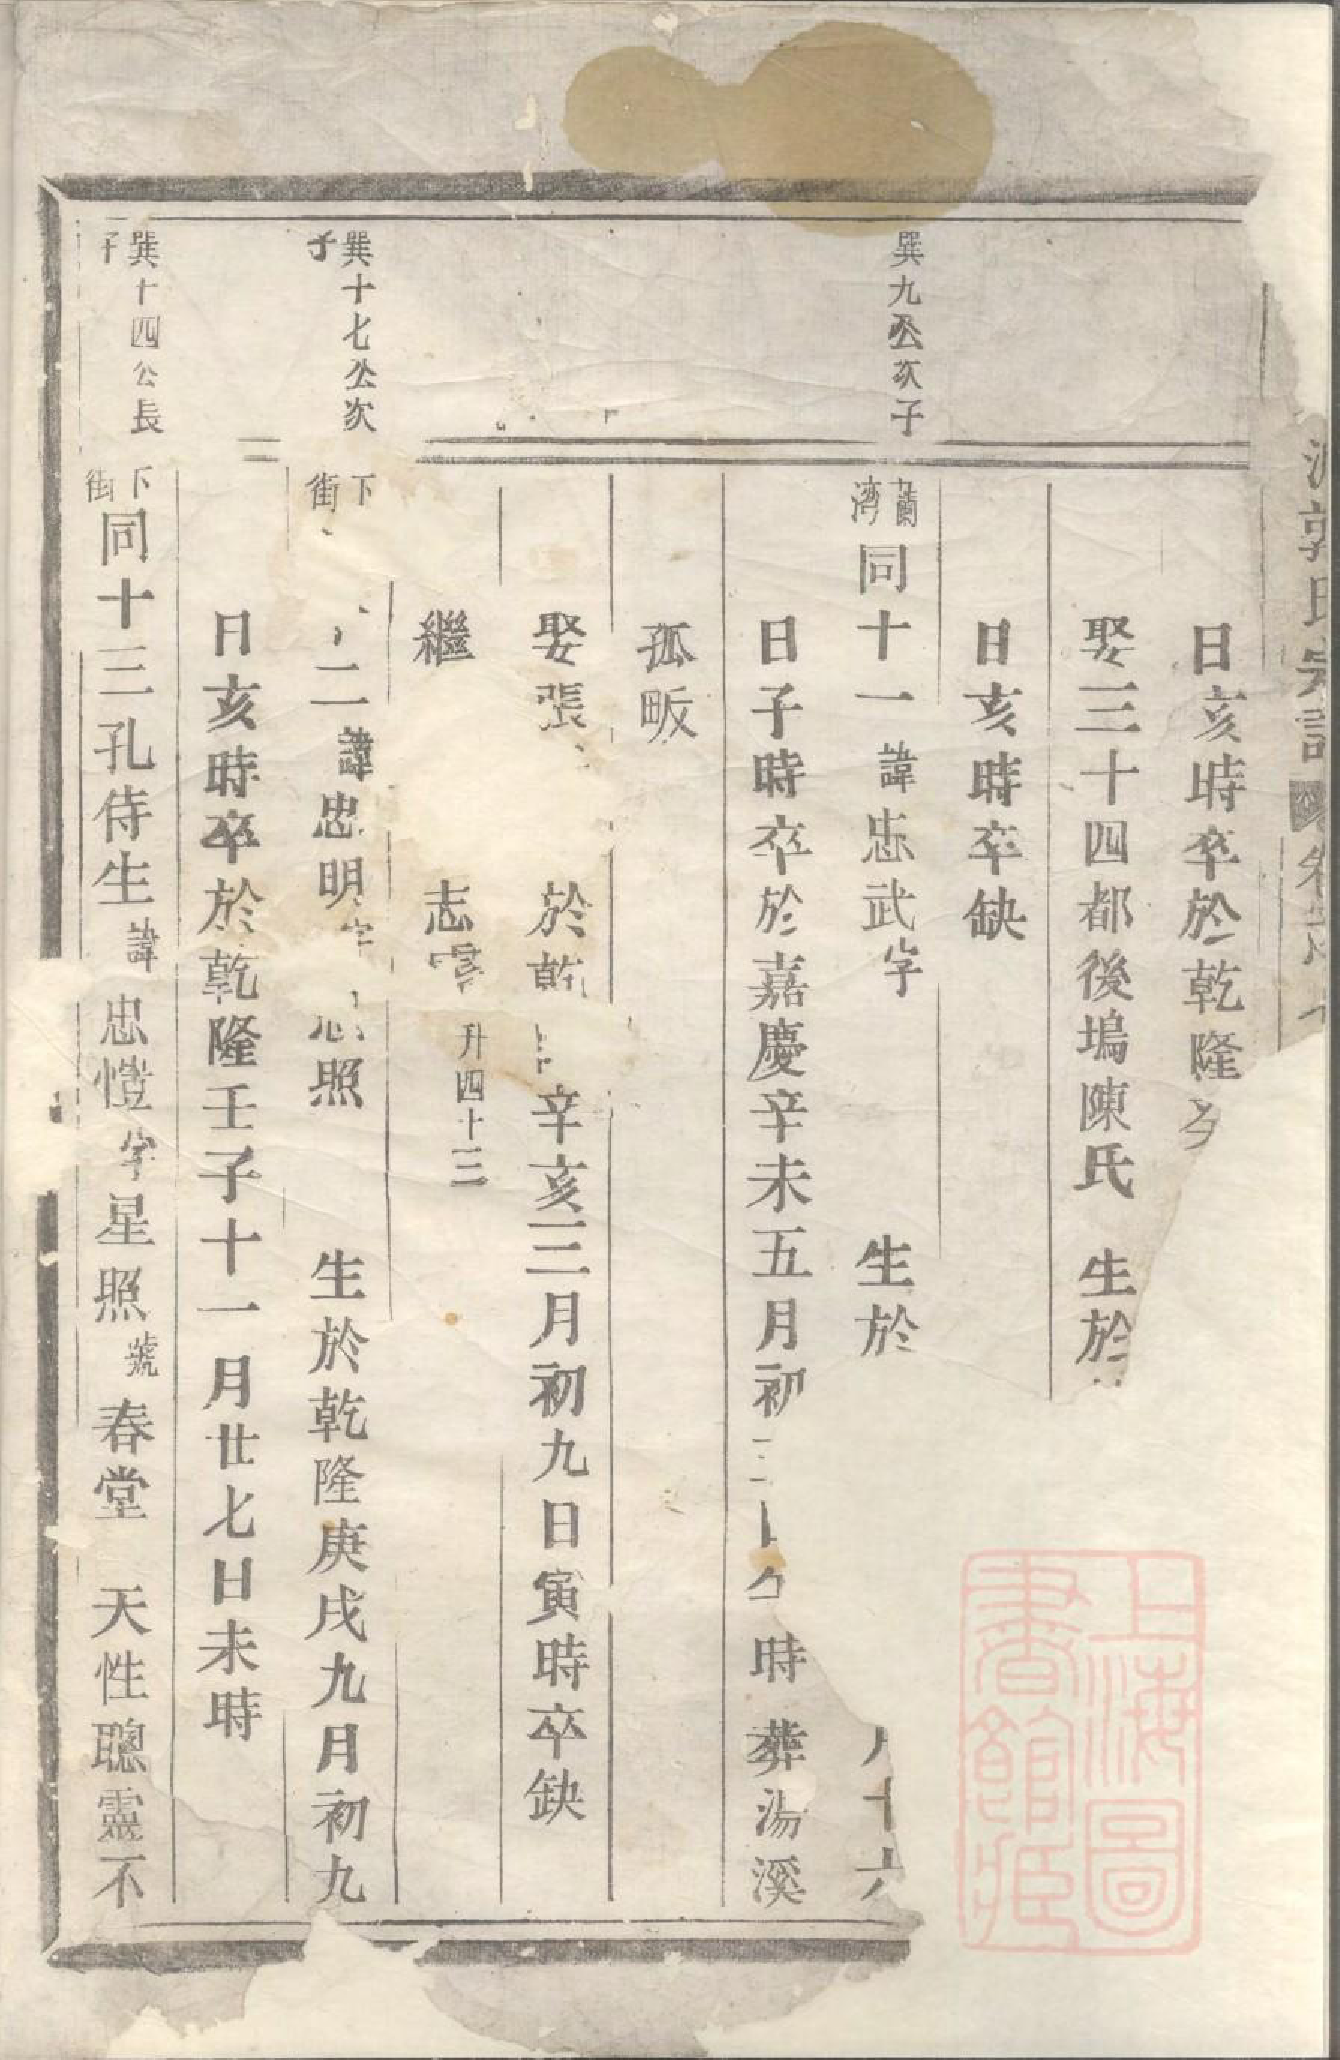 郭氏宗譜
日亥時卒於乾隆
娶三十四都後塢陳氏 生於
日亥時卒缺
巽九公次子
蘭湾 同十一 諱忠武字 生於 十六
日子時卒於嘉慶辛未五月初 時 葬湯溪
孤畈
娶張 於乾 辛亥二月初九日寅時卒缺
繼 志 升四十三
巽十七公次子
下街 二 諱忠明字 照 生於乾隆庚戌九月初九
日亥時卒於乾隆壬子十一月廿七日未時
巽十四公長子
下街 同十三孔侍生 諱忠愷字星照號春堂 天性聰靈不
上海圖書館藏